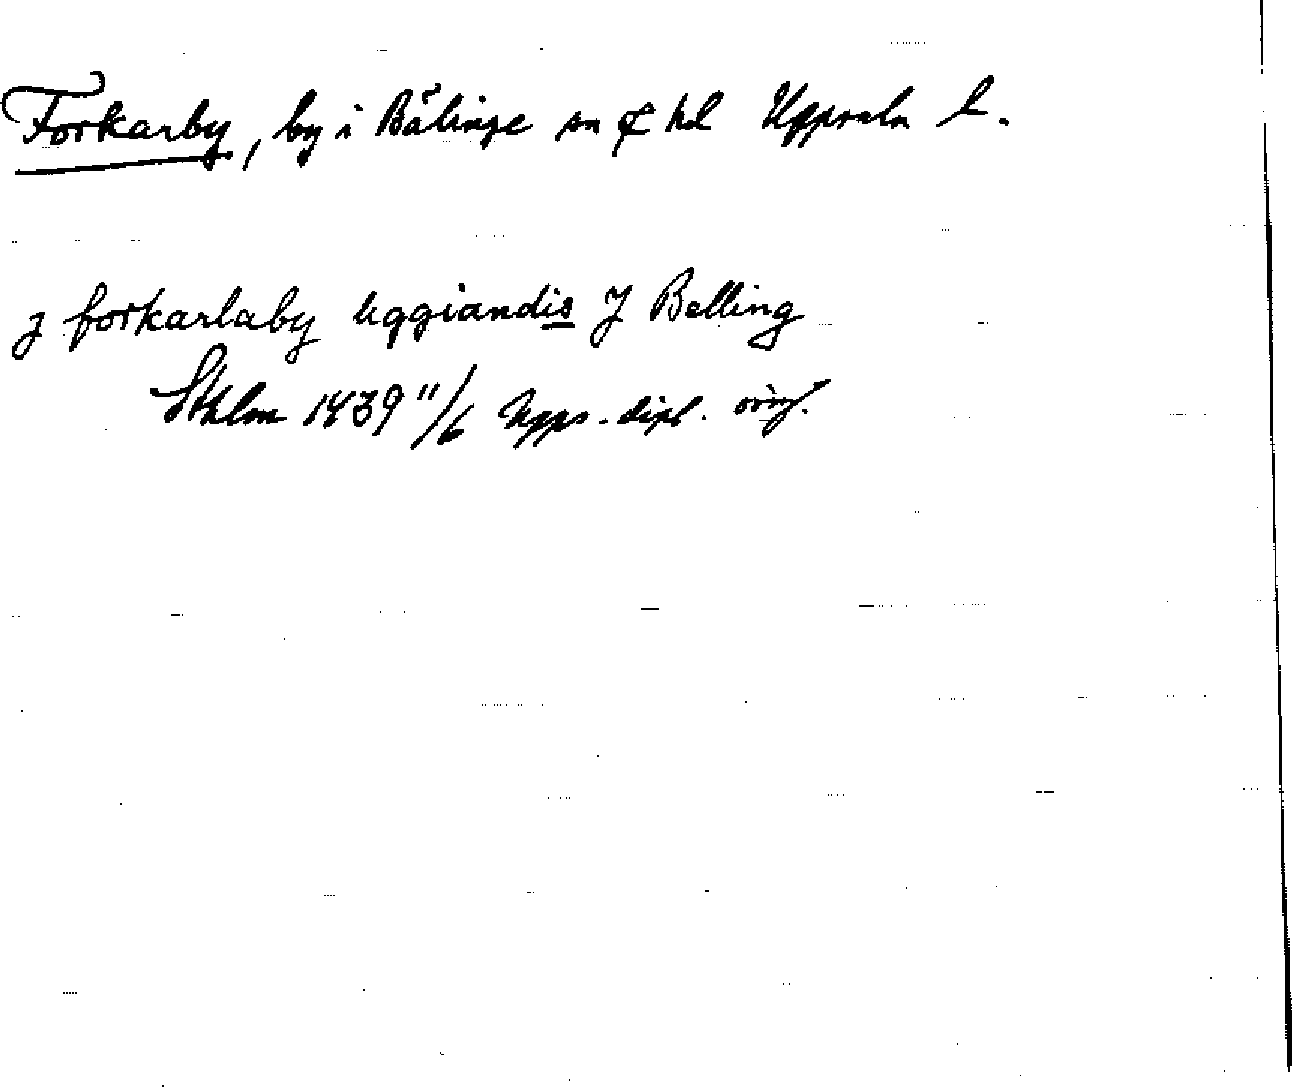 Forkarby, by i Bälinge sn & hd Uppsala l.
j forkarlaby liggiandis J Belling
Sthlm 1439 11/6 Upps. dipl. orig.